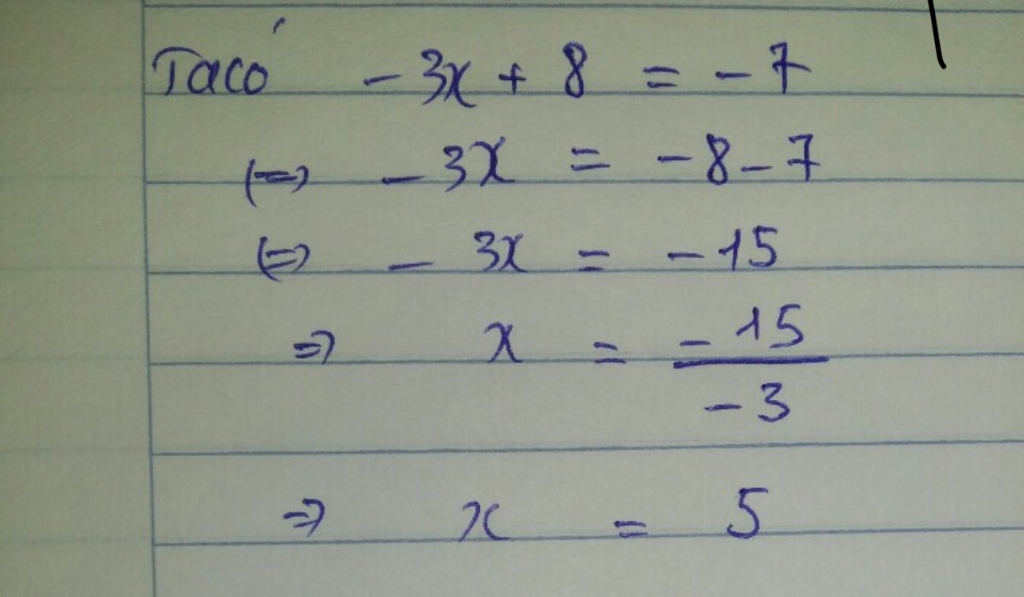 Ta có -3x + 8 = -7
(=) -3x = -8-7
(=) - 3x = -15
=> x = -15/-3
=> x = 5